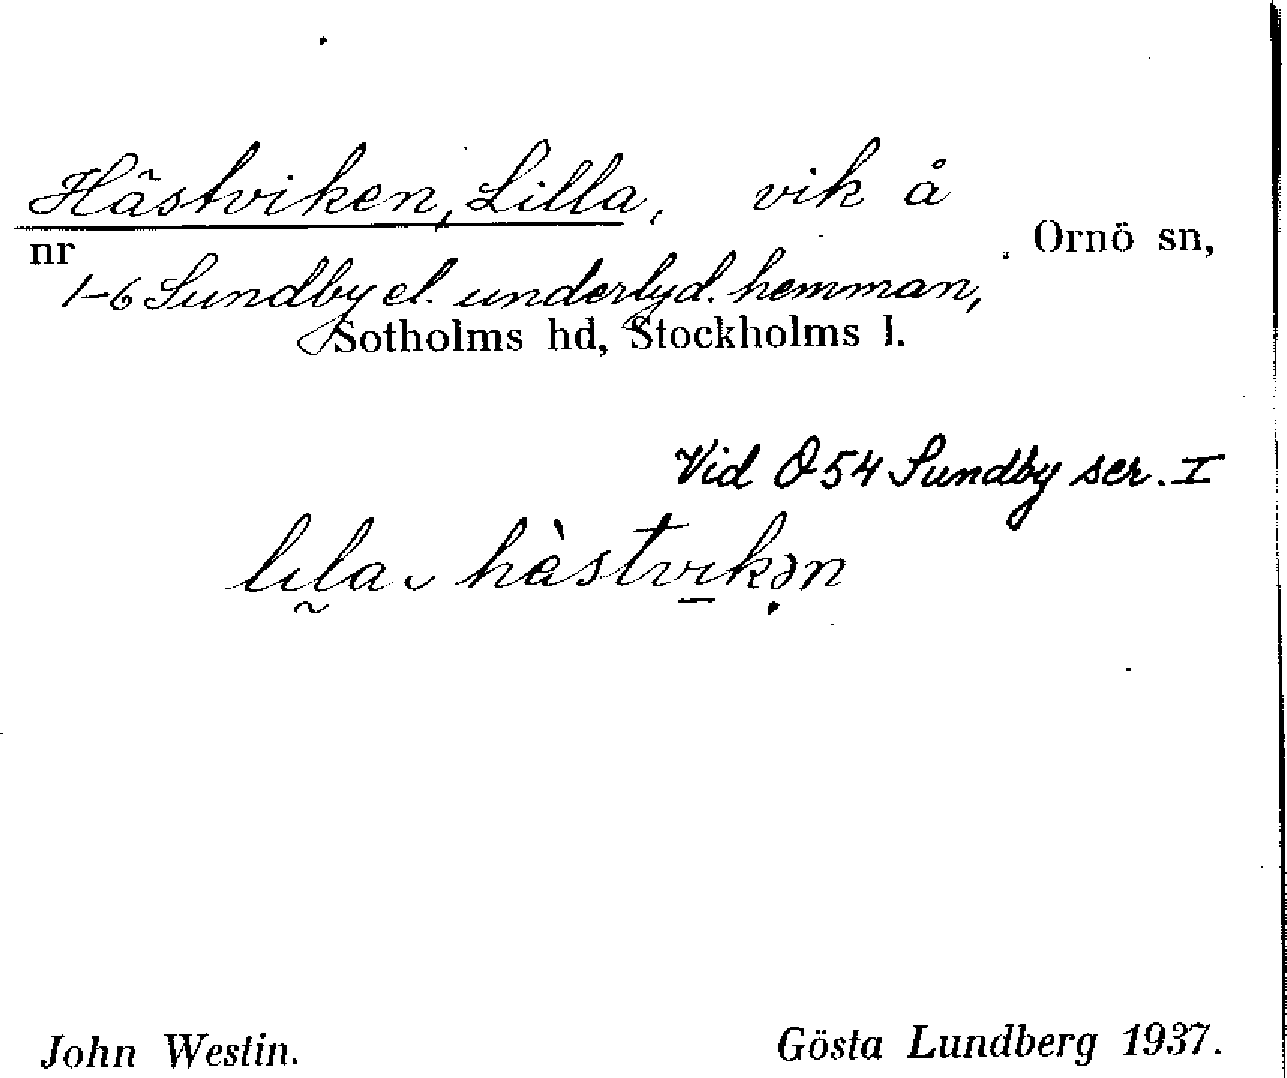 Hästviken, Lilla, vik å
nr 1-6 Sundby el. underlyd. hemman, Ornö sn,
Sotholms hd, Stockholms l.
Vid Ö54 Sundby ser. I
lɩl̰a hàstvɩ̱kə̣n
John Westin. Gösta Lundberg 1937.